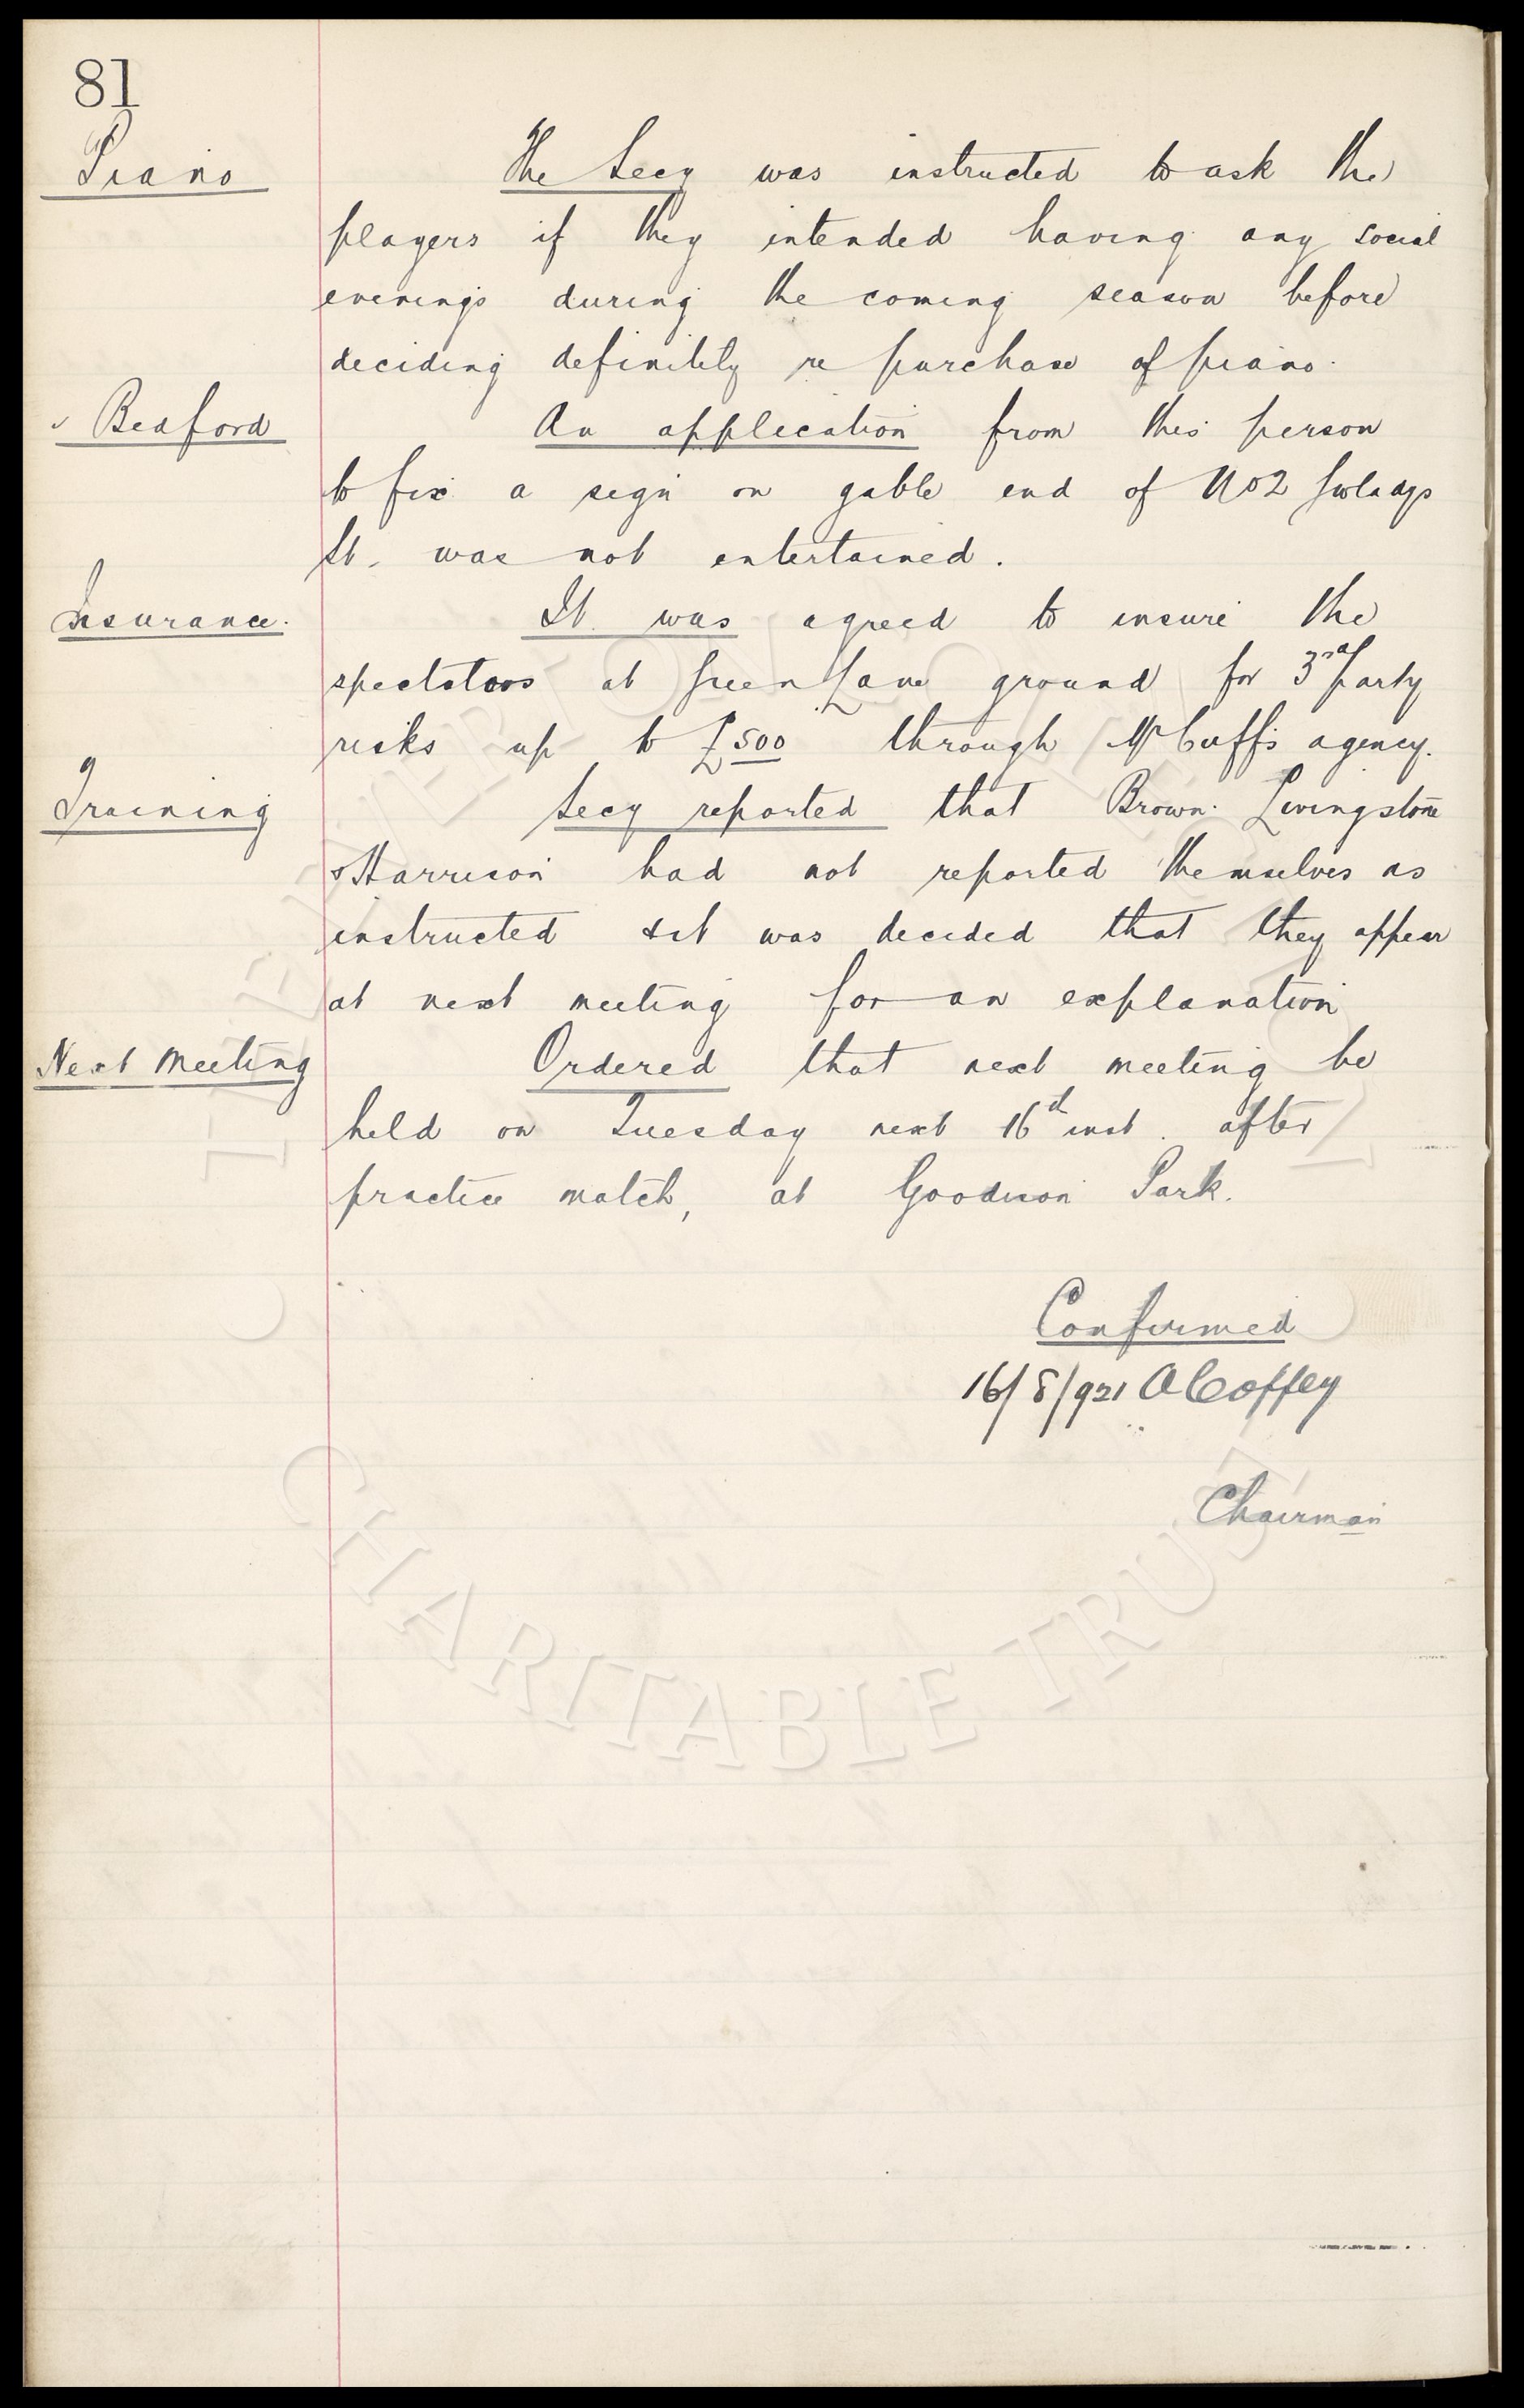 81
Piano
The Secy was instructed to ask the
players if they intended having any social
evenings during the coming season before
deciding definitely re purchase of piano.
Bedford
An application from this person
to fix a sign on gable end of No2 Gwladys
St. was not entertained.
Insurance.
It was agreed to insure the
spectators at Green Lane ground for 3rd party
risks up to £500 through Mr Cuff's agency.
Training
Secy reported that Brown. Livingstone
& Harrison had not reported themselves as
instructed & it was decided that they appear
at next meeting for an explanation
Next Meeting
Ordered that next meeting be
held on Tuesday next 16th inst. after
practice match, at Goodison Park.
Confirmed
16/8/921 A Coffey
Chairman
CHARITABLE TRUST